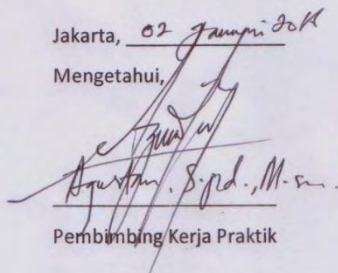 Jakarta, 02 Januari 2018
Mengetahui,
Agustan, S.pd., M.sn.
Pembimbing Kerja Praktik